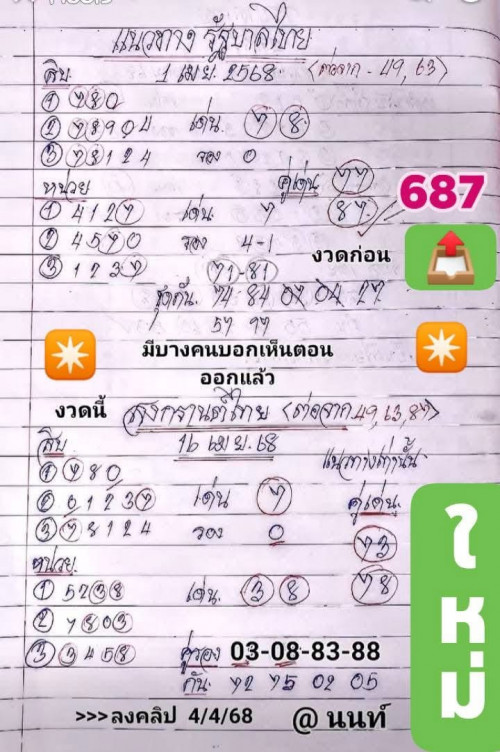 แนวทาง รัฐบาลไทย
สิบ. 1 เม.ย. 2568 (ต่อจาก - 49, 63)
① 780
② 78904 เด่น. 7 8
③ 78124 รอง 0
หน่วย คู่เด่น 77
687
① 4127 เด่น 7 87
② 4570 รอง 4-1 งวดก่อน
③ 1237 71-81
ชุดกัน. 74 84 07 04 27
57 97
มีบางคนบอกเห็นตอน
ออกแล้ว
งวดนี้ สงกรานต์ไทย (ต่อจาก 49, 63, 87)
สิบ 16 เม.ย. 68
แนวทางเท่านั้น
① 780
② 01237 เด่น 7 คู่เด่น.
③ 78124 รอง 0
73
หน่วย.
① 5738 เด่น. 3 8 78
② 7803
③ 3458 คู่รอง 03-08-83-88
กัน. 72 75 02 05
ใหม่
>>>ลงคลิป 4/4/68 @ นนท์